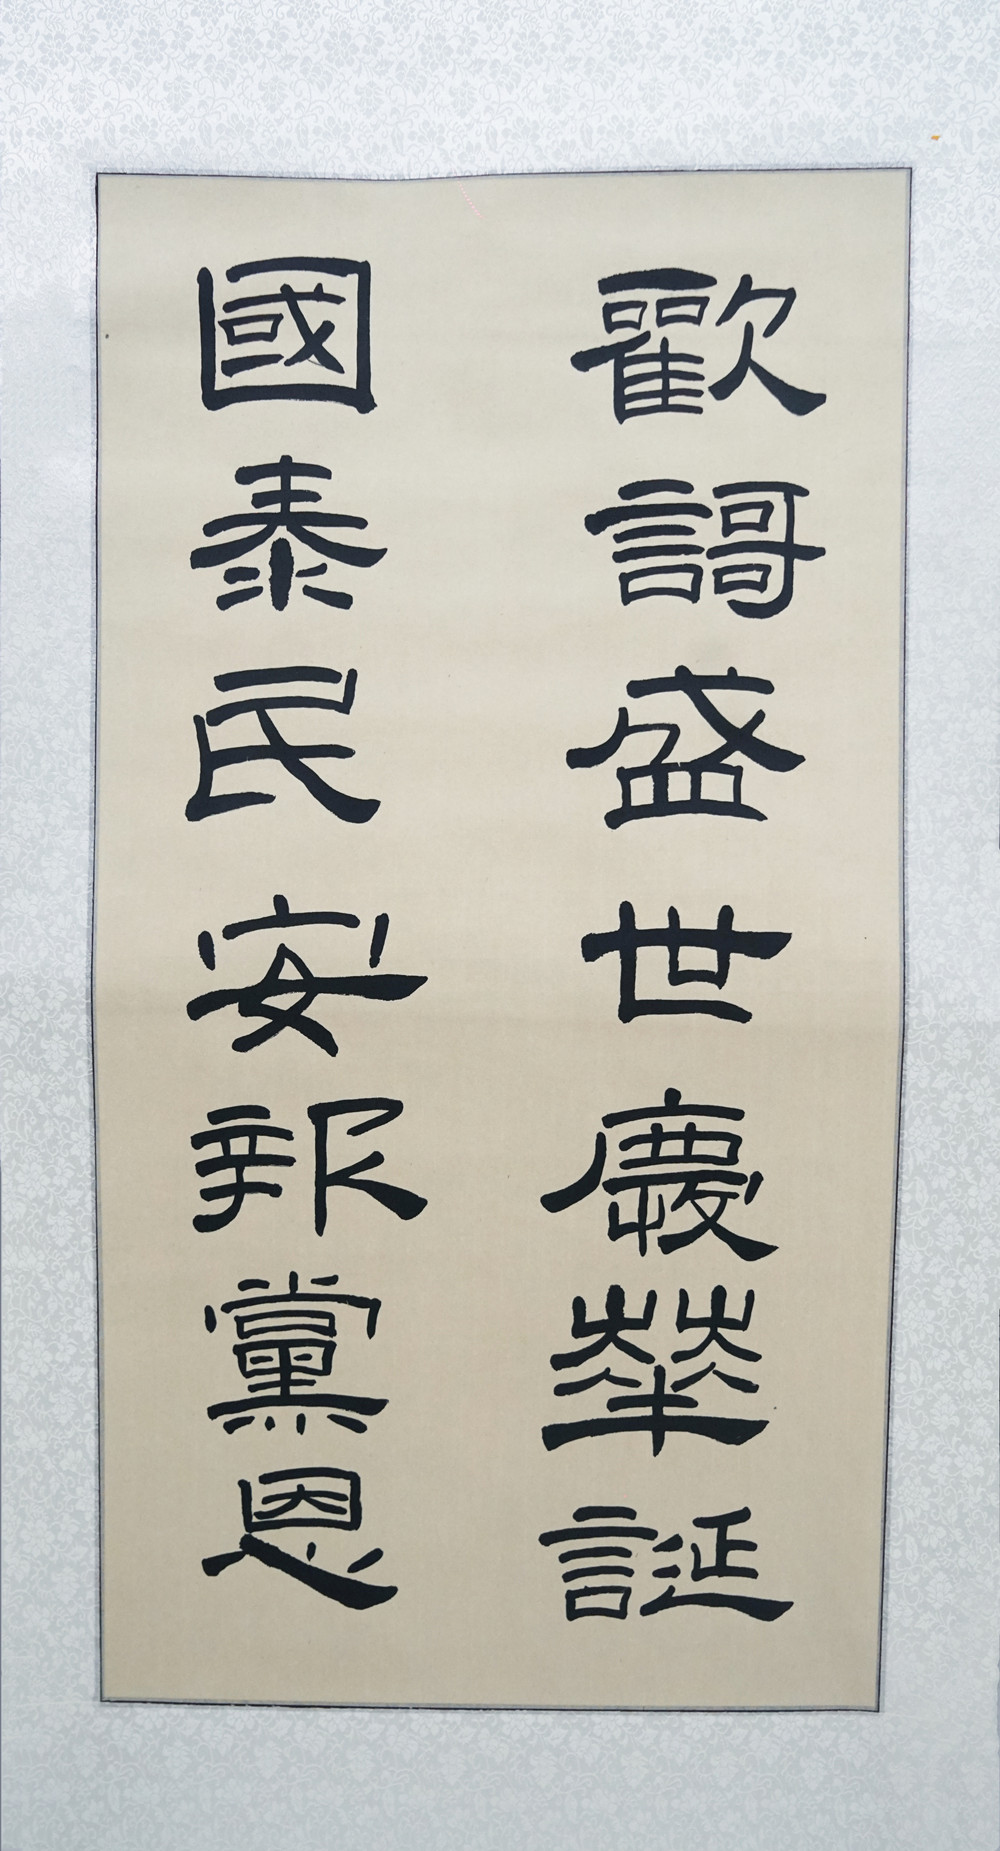 歡謌盛世慶華誕
國泰民安報黨恩